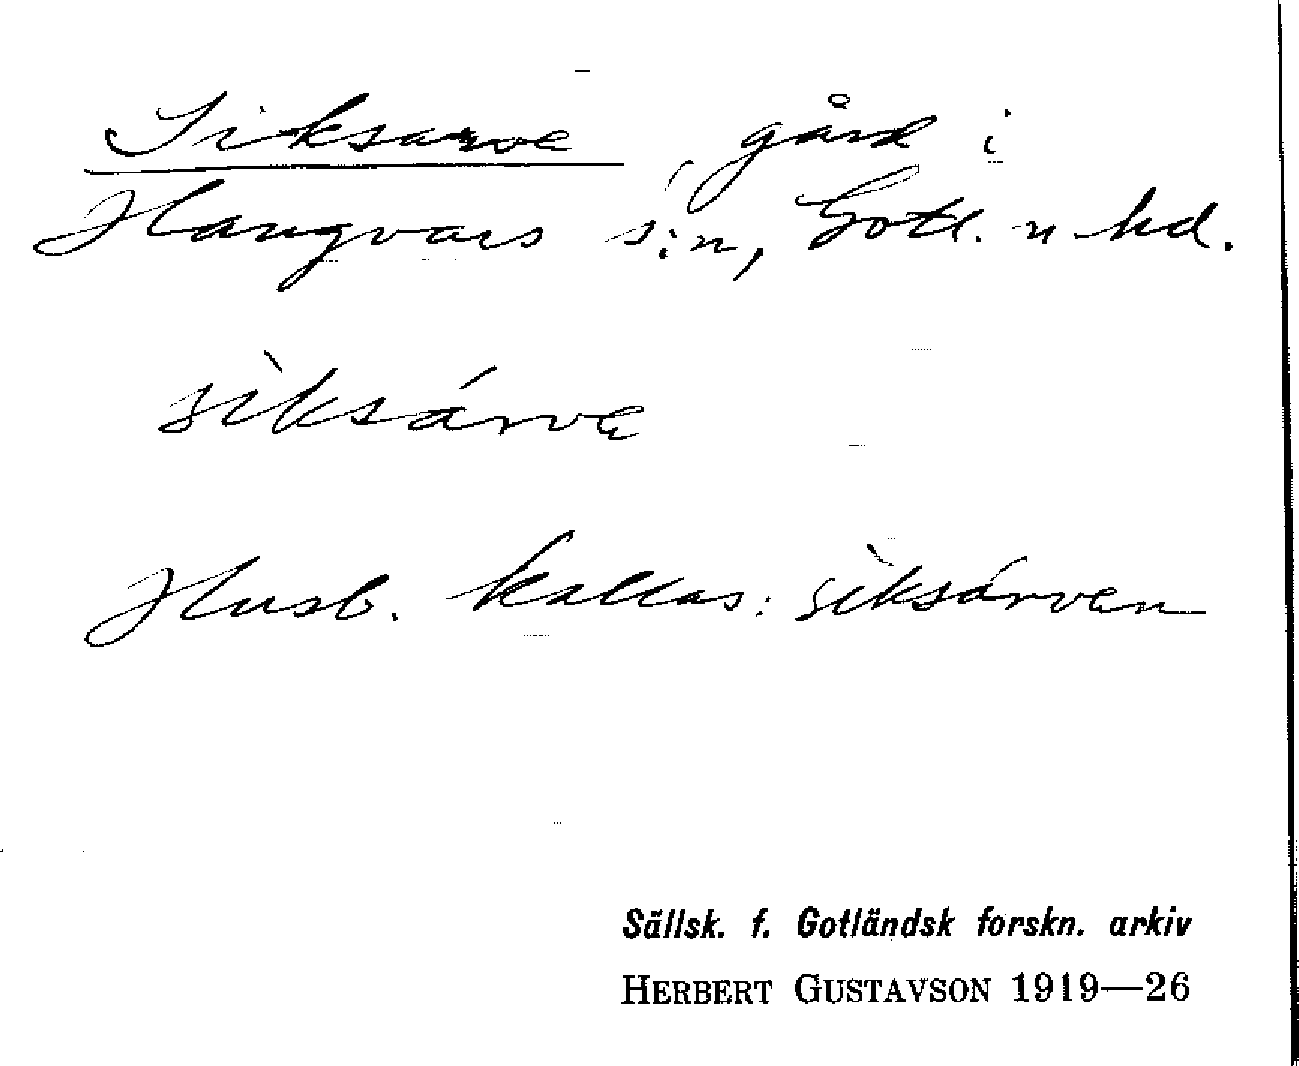 Siksarve, gård i
Hangvars s:n, Gotl. n hd.
sìksárve
Husb. kallas: sìksárven
Sällsk. f. Gotländsk forskn. arkiv
HERBERT GUSTAVSON 1919—26